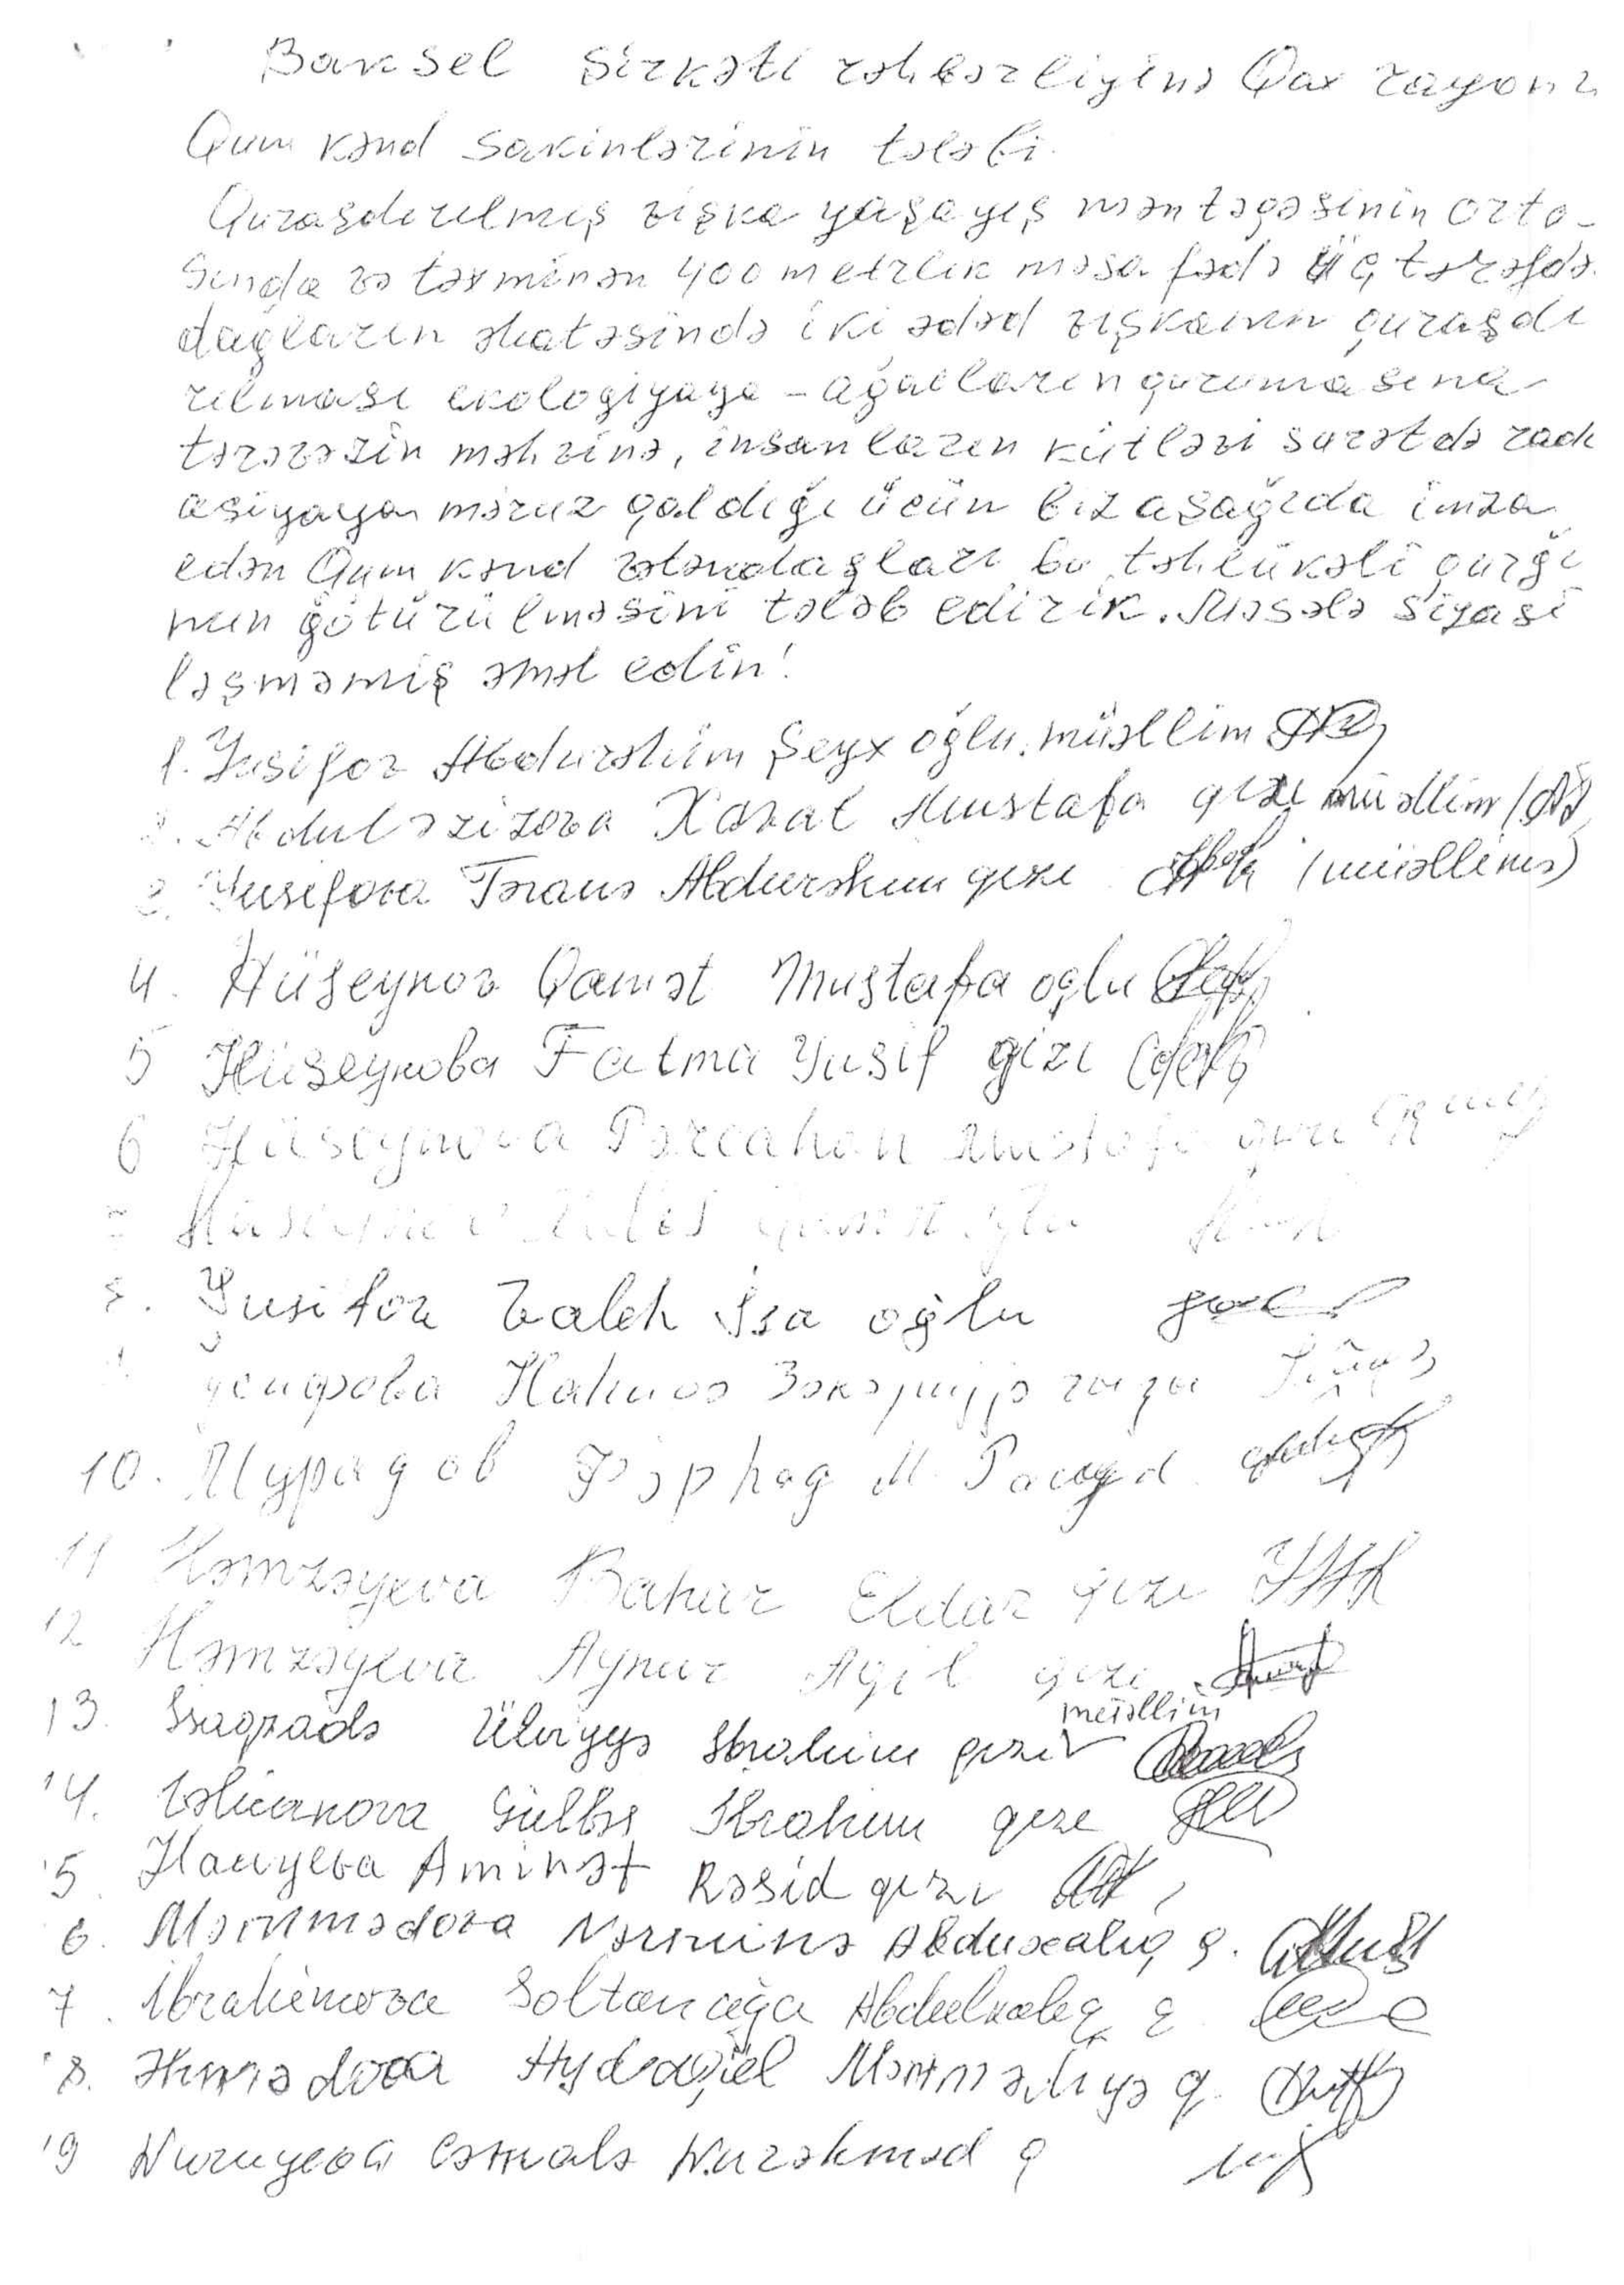 Baksel Şirkəti rəhbərliyinə Qax rayonu
Qum kənd sakinlərinin tələbi.
Quraşdırılmış vışka yaşayış məntəqəsinin orta-
sında və təxminən 400 metrlik məsafədə üç tərəfdə
dağların əhatəsində iki ədəd vışkanın quraşdı
rılması ekologiyaya - ağacların qurumasına
tərəvəzin məhvinə, insanların kütləvi surətdə radi
asiyaya məruz qaldığı üçün biz aşağıda imza
edən Qum kənd vətəndaşları bu təhlükəli qurğu
nun götürülməsini tələb edirik. Məsələ siyasi
ləşməmiş əməl edin!
1. Yusifov Abdurəhim Şeyx oğlu, müəllim
2. Abduləzizova Xəzal Mustafa qızı müəllim
3. Yusifova Təranə Abdurəhim qızı (müəllimə)
4. Hüseynov Qamət Mustafa oğlu
5 Hüseynova Fatma Yusif qızı
6 Hüseynova Pərcahan Mustafa qızı
Hüseynov oğlu
8. Yusifov Valeh İsa oğlu
Jусифова Зəкəриjjə гызы
10. Мурадов Фəрhад М. Рашид
11 Həmzəyeva Bahar Eldar qızı
12 Həmzəyeva Aynur Aqil qızı
müəllim
13. İsaqzadə Ülviyyə İbrahim qızı
14. Vəlicanova Gülbəs İbrahim qızı
15. Aminət Rəşid qızı
6. Məmmədova Nərminə Abduxalıq q.
7. İbrahimova Soltanağa Abdulxalıq q
18. Əhmədova Məmmədiyə q.
19 Nuruyeva Camalə Nurəhməd q